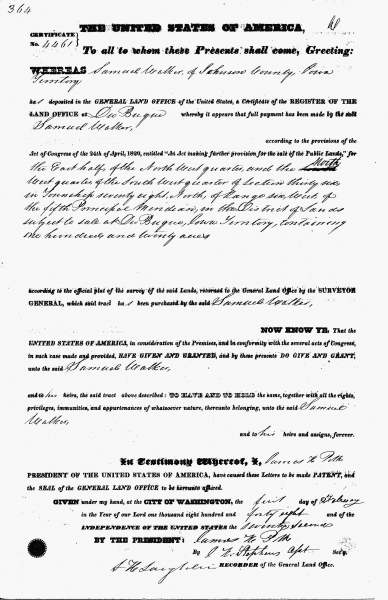 364
THE UNITED STATES OF AMERICA,
CERTIFICATE
No. 4461
To all to whom these Presents shall come, Greeting:
WHEREAS Samuel Walker, of Johnson County, Iowa
Territory
has deposited in the GENERAL LAND OFFICE of the United States, a Certificate of the REGISTER OF THE
LAND OFFICE at Du Buque whereby it appears that full payment has been made by the said
Samuel Walker,
according to the provisions of the
Act of Congress of the 24th of April, 1820, entitled "An Act making further provision for the sale of the Public Lands," for
the East half, of the North West quarter, and the North
West quarter of the South West quarter of Section thirty six
in Township seventy eight, North, of Range six West, of
the fifth Principal Meridian, in the District of Lands
subject to sale at Du Buque, Iowa Territory, containing
one hundred and twenty acres
according to the official plat of the survey of the said Lands, returned to the General Land Office by the SURVEYOR
GENERAL, which said tract has been purchased by the said Samuel Walker,
NOW KNOW YE, That the
UNITED STATES OF AMERICA, in consideration of the Premises, and in conformity with the several acts of Congress,
in such case made and provided, HAVE GIVEN AND GRANTED, and by these presents DO GIVE AND GRANT,
unto the said Samuel Walker,
and to his heirs, the said tract above described: TO HAVE AND TO HOLD the same, together with all the rights,
privileges, immunities, and appurtenances of whatsoever nature, thereunto belonging, unto the said Samuel
Walker,
and to his heirs and assigns, forever.
In Testimony Whereof, I, James K. Polk
PRESIDENT OF THE UNITED STATES OF AMERICA, have caused these Letters to be made PATENT, and
the SEAL of the GENERAL LAND OFFICE to be hereunto affixed.
GIVEN under my hand, at the CITY OF WASHINGTON, the first day of February
in the Year of our Lord one thousand eight hundred and forty eight and of the
INDEPENDENCE OF THE UNITED STATES the seventy second
BY THE PRESIDENT: James K. Polk
By J. K. Stephens Asst Sec'y.
S. H. Laughlin RECORDER of the General Land Office.